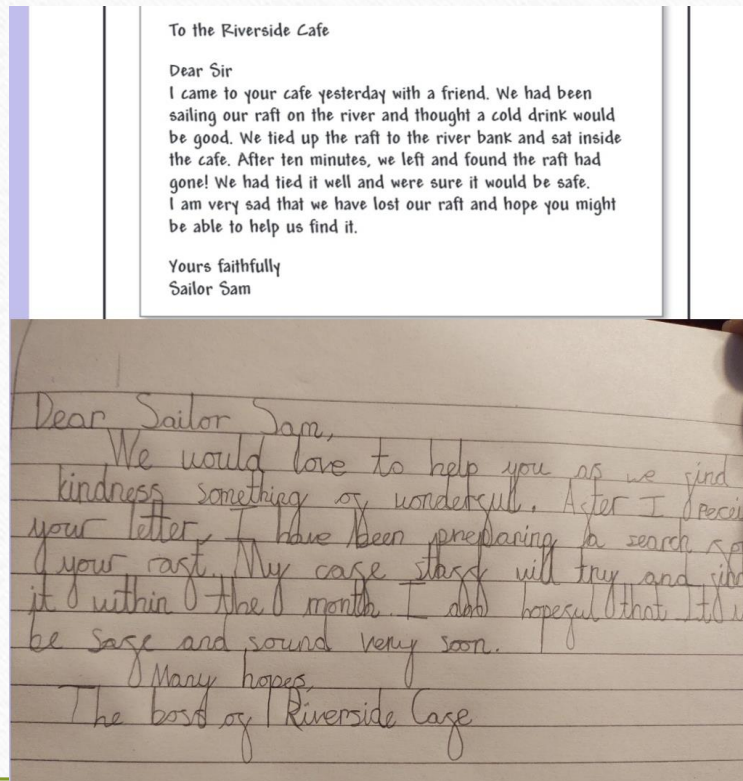 To the Riverside Cafe
Dear Sir
I came to your cafe yesterday with a friend. We had been
sailing our raft on the river and thought a cold drink would
be good. We tied up the raft to the river bank and sat inside
the cafe. After ten minutes, we left and found the raft had
gone! We had tied it well and were sure it would be safe.
I am very sad that we have lost our raft and hope you might
be able to help us find it.
Yours faithfully
Sailor Sam
Dear Sailor Sam,
We would love to help you as we find
kindness something of wonderful. After I
your letter, I have been preparing a search
your raft. My cafe staff will try and find
it within the month. I hopeful that
be safe and sound very soon.
Many hopes,
The of Riverside Cafe